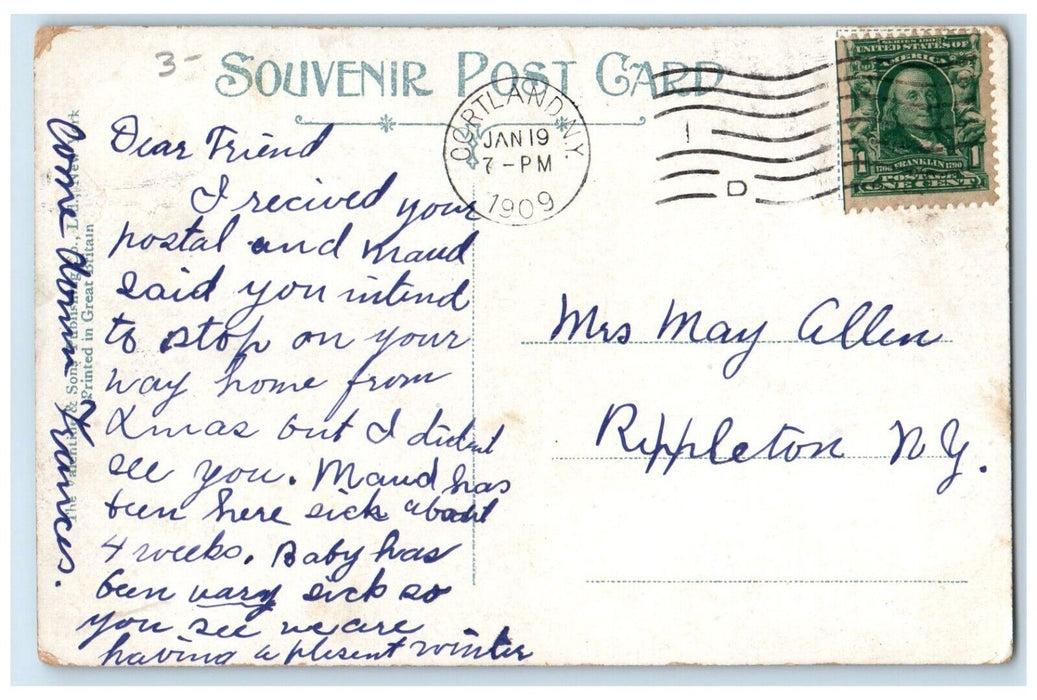 3-
SOUVENIR POST CARD
CORTLAND, N.Y.
JAN 19
7-PM
1909
1
D
SERIES 1902
UNITED STATES OF
AMERICA
FRANKLIN
1706 1790
1 1
POSTAGE
ONE CENT
Dear Friend
I recived your
postal and Maud
said you intend
to stop on your
way home from
Xmas but I didnt
see you. Maud has
been here sick about
4 weeks. Baby has
been vary sick so
you see we are
having a plesent winter
Come down Frances.
The Valentine & Sons Publishing Co., New York
Printed in Great Britain
Mrs May Allen
Rippleton N.Y.